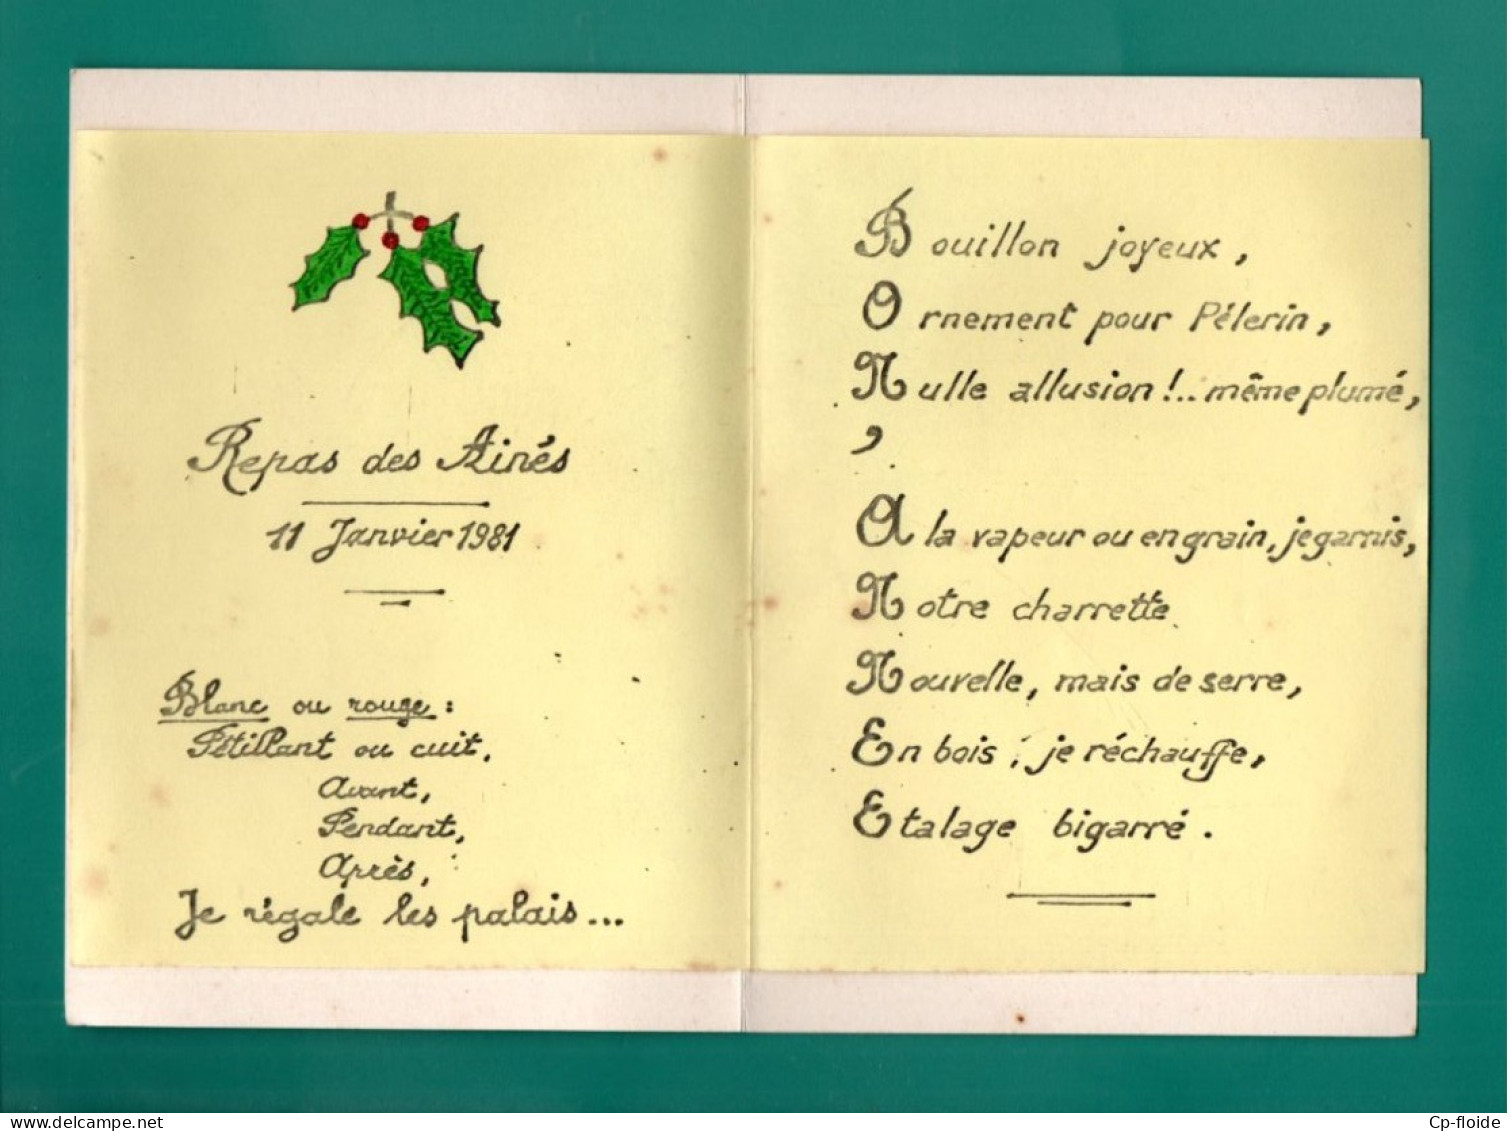 Repas des Ainés
11 Janvier 1981
Blanc ou rouge :
Pétillant ou cuit.
Avant,
Pendant,
Après,
Je régale les palais...
Bouillon joyeux,
Ornement pour Pélerin,
Nulle allusion !.. même plumé,
,
A la vapeur ou en grain, je garnis,
Notre charrette
Nouvelle, mais de serre,
En bois, je réchauffe,
Etalage bigarré.
Cp-floide